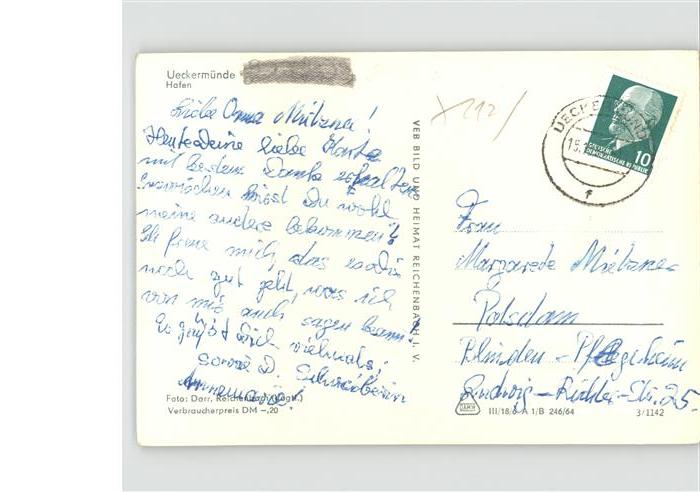 Ueckermünde
Hafen
Liebe Oma Mützner!
Heute Deine liebe Karte
mit bestem Danke erhalten.
Inzwischen hast Du wohl
meine andere bekommen?
Ich freue mich, das es Dir
noch gut geht, was ich
von mir auch sagen kann.
Es grüßt Dich vielmals,
sowie D.
Annemarie!
Foto: Darr, Reichenbach (Vogtl.)
Verbraucherpreis DM -,20
VEB BILD UND HEIMAT REICHENBACH I. V.
UECKERMÜNDE
10
DEUTSCHE
DEMOKRATISCHE REPUBLIK
Frau
Margarede Mützner
Potsdam
Blinden-Pflegeheim
Ludwig-Richter-Str. 25.
III/18/6 A 1/B 246/64
3/1142